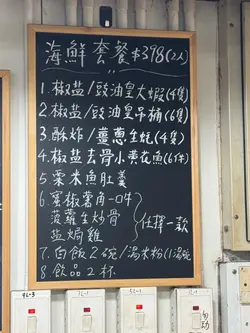 海鮮套餐$398(2人)
1.椒盐/豉油皇大蝦(4隻)
2.椒盐/豉油皇吊桶(6隻)
3.酥炸/薑蔥生蚝(4隻)
4.椒盐去骨小黃花魚(6件)
5.粟米魚肚羹
6.蜜椒薯角一口牛
菠蘿生炒骨
盐焗雞
任擇一款
7.白飯2碗/湯米粉(1湯碗)
8.飲品2杯